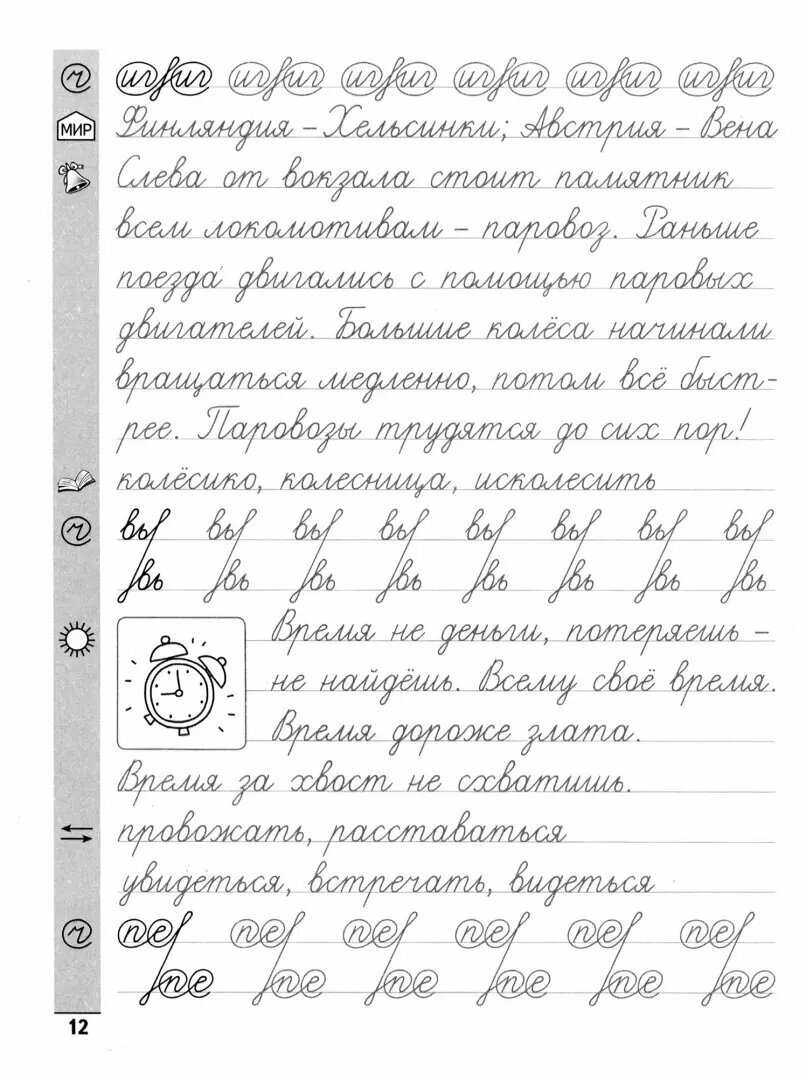 МИР
Финляндия – Хельсинки; Австрия – Вена
Слева от вокзала стоит памятник
всем локомотивам – паровоз. Раньше
поезда двигались с помощью паровых
двигателей. Большие колёса начинали
вращаться медленно, потом всё быст-
рее. Паровозы трудятся до сих пор!
колёсико, колесница, исколесить
вы вы вы вы вы вы вы вы
вь вь вь вь вь вь вь вь
Время не деньги, потеряешь –
не найдёшь. Всему своё время.
Время дороже злата.
Время за хвост не схватишь.
провожать, расставаться
увидеться, встречать, видеться
пе пе пе пе пе пе
пе пе пе пе пе пе
12